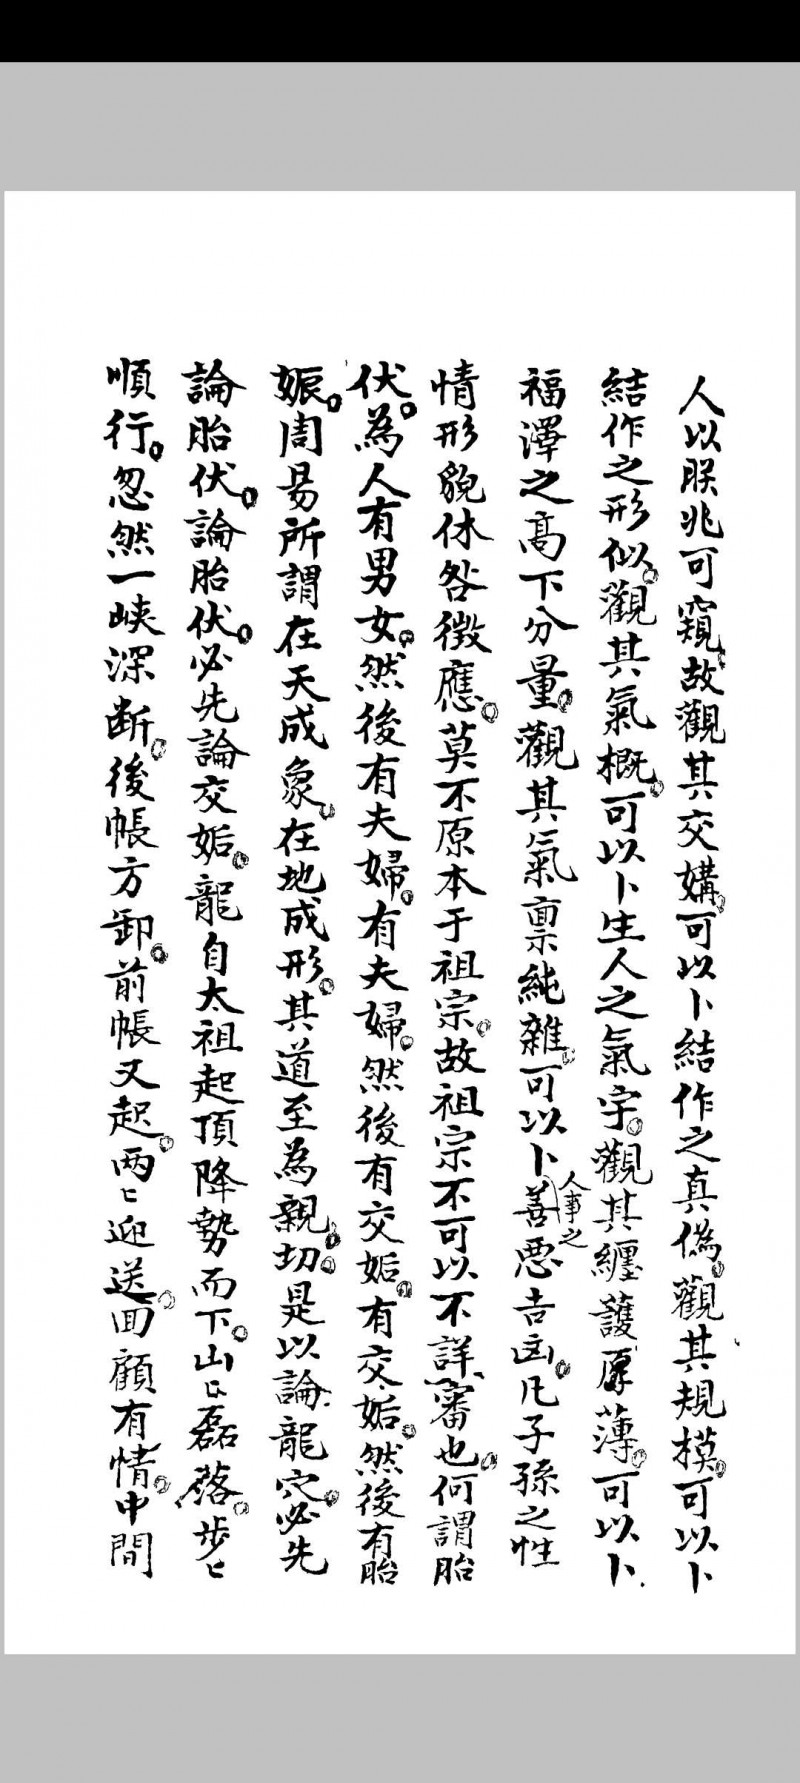 人以朕兆可窺。故觀其交媾。可以卜結作之真偽。觀其規模。可以卜
結作之形似。觀其氣概。可以卜生人之氣宇。觀其纏護厚薄。可以卜
福澤之高下分量。觀其氣稟純雜。可以卜人事之善惡吉凶。凡子孫之性
情形貌休咎徵應。莫不原本于祖宗。故祖宗不可以不詳審也。何謂胎
伏。為人有男女。然後有夫婦。有夫婦。然後有交姤。有交姤。然後有胎
娠。周易所謂在天成象。在地成形。其道至為親切。是以論龍穴。必先
論胎伏。論胎伏。必先論交姤。龍自太祖起頂降勢而下。山〻磊落。步〻
順行。忽然一峽深斷。後帳方卸。前帳又起。両〻迎送。回顧有情。中間